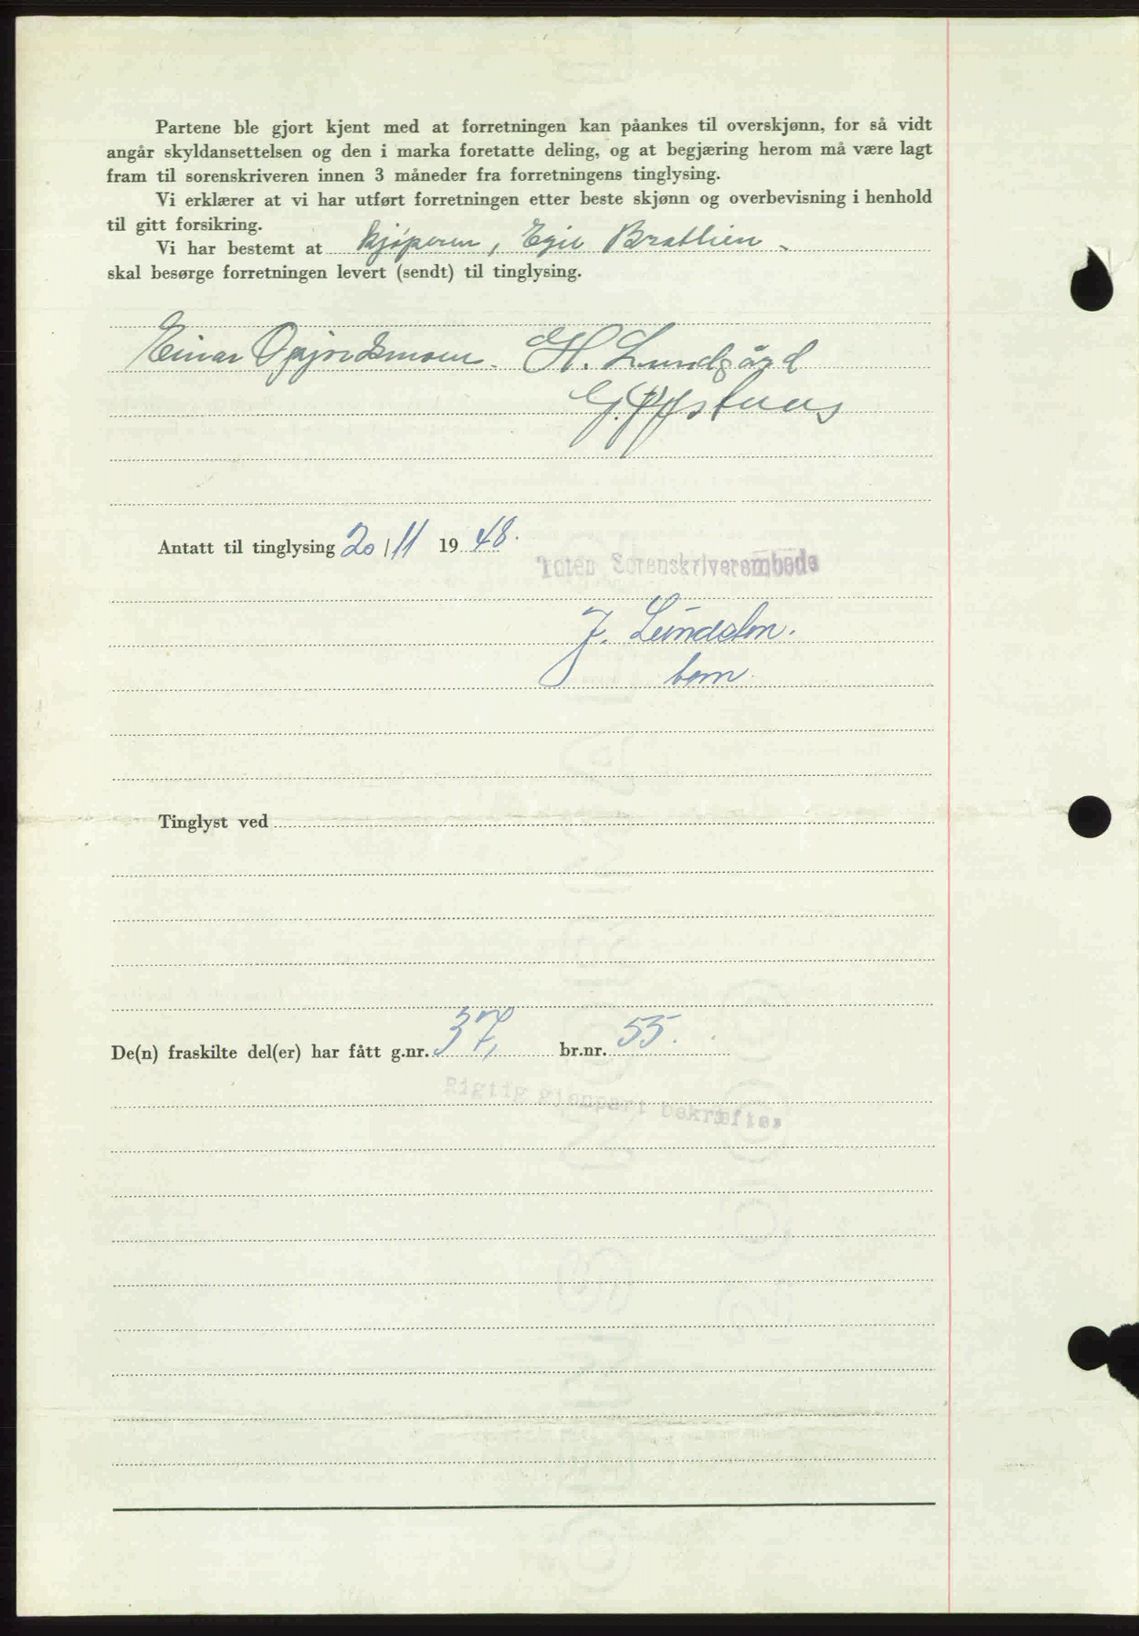 Partene ble gjort kjent med at forretningen kan påankes til overskjønn, for så vidt
angår skyldansettelsen og den i marka foretatte deling, og at begjæring herom må være lagt
fram til sorenskriveren innen 3 måneder fra forretningens tinglysing.
Vi erklærer at vi har utført forretningen etter beste skjønn og overbevisning i henhold
til gitt forsikring.
Vi har bestemt at kjøperen, Egil Brathlien
skal besørge forretningen levert (sendt) til tinglysing.
Einar H. Lundgård
Antatt til tinglysing 20/11 1948.
Toten Sorenskriverembede
J. Lundslon.
bem
Tinglyst ved
De(n) fraskilte del(er) har fått g.nr. 37, br.nr. 55.
Rigtig gjenpart bekræftes